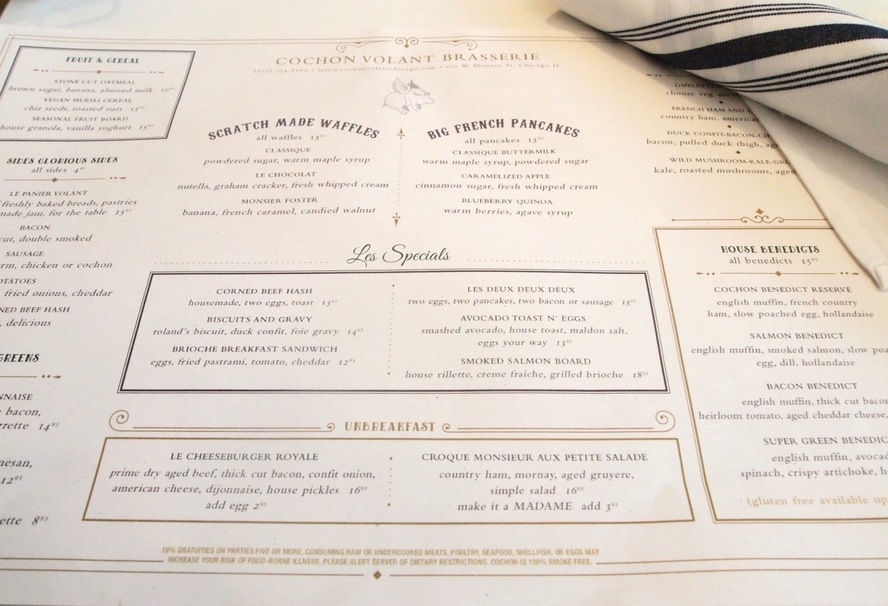 COCHON VOLANT BRASSERIE
FRUIT & CEREAL
STONE CUT OATMEAL
brown sugar, banana, almond milk 10⁹⁵
VEGAN MUESLI CEREAL
chia seeds, toasted oats
SEASONAL FRUIT BOARD
house granola, vanilla yoghurt
SIDES GLORIOUS SIDES
all sides 4⁹⁵
LE PANIER VOLANT
freshly baked breads, pastries
made jam, for the table
BACON
cut, double smoked
SAUSAGE
chicken or cochon
fried onions, cheddar
BEEF HASH
delicious
GREENS
bacon,
14⁹⁵
12⁹⁵
8⁹⁵
SCRATCH MADE WAFFLES
all waffles 13⁹⁵
CLASSIQUE
powdered sugar, warm maple syrup
LE CHOCOLAT
nutella, graham cracker, fresh whipped cream
MONSIER FOSTER
banana, french caramel, candied walnut
BIG FRENCH PANCAKES
all pancakes 13⁹⁵
CLASSIQUE BUTTERMILK
warm maple syrup, powdered sugar
CARAMELIZED APPLE
cinnamon sugar, fresh whipped cream
BLUEBERRY QUINOA
warm berries, agave syrup
Les Specials
CORNED BEEF HASH
housemade, two eggs, toast 13⁹⁵
BISCUITS AND GRAVY
roland's biscuit, duck confit, foie gravy 14⁹⁵
BRIOCHE BREAKFAST SANDWICH
eggs, fried pastrami, tomato, cheddar 12⁹⁵
LES DEUX DEUX DEUX
two eggs, two pancakes, two bacon or sausage 15⁹⁵
AVOCADO TOAST N' EGGS
smashed avocado, house toast, maldon salt,
eggs your way 13⁹⁵
SMOKED SALMON BOARD
house rillette, creme fraiche, grilled brioche 18⁹⁵
UNBREAKFAST
LE CHEESEBURGER ROYALE
prime dry aged beef, thick cut bacon, confit onion,
american cheese, dijonnaise, house pickles 16⁹⁵
add egg 2⁹⁵
CROQUE MONSIEUR AUX PETITE SALADE
country ham, mornay, aged gruyere,
simple salad 16⁹⁵
make it a MADAME add 3⁹⁵
FRENCH HAM AND
country ham,
DUCK CONFIT-BACON-CH
bacon, pulled duck thigh,
WILD MUSHROOM-KALE-GR
kale, roasted mushrooms, aged
HOUSE BENEDICTS
all benedicts 15⁹⁵
COCHON BENEDICT RESERVE
english muffin, french country
ham, slow poached egg, hollandaise
SALMON BENEDICT
english muffin, smoked salmon, slow poa
egg, dill, hollandaise
BACON BENEDICT
english muffin, thick cut bacon
heirloom tomato, aged cheddar cheese,
SUPER GREEN BENEDIC
english muffin, avocad
spinach, crispy artichoke, h
(gluten free available up
18% GRATUITIES ON PARTIES FIVE OR MORE. CONSUMING RAW OR UNDERCOOKED MEATS, POULTRY, SEAFOOD, SHELLFISH, OR EGGS MAY
INCREASE YOUR RISK OF FOOD-BORNE ILLNESS. PLEASE ALERT SERVER OF DIETARY RESTRICTIONS. COCHON IS 100% SMOKE FREE.